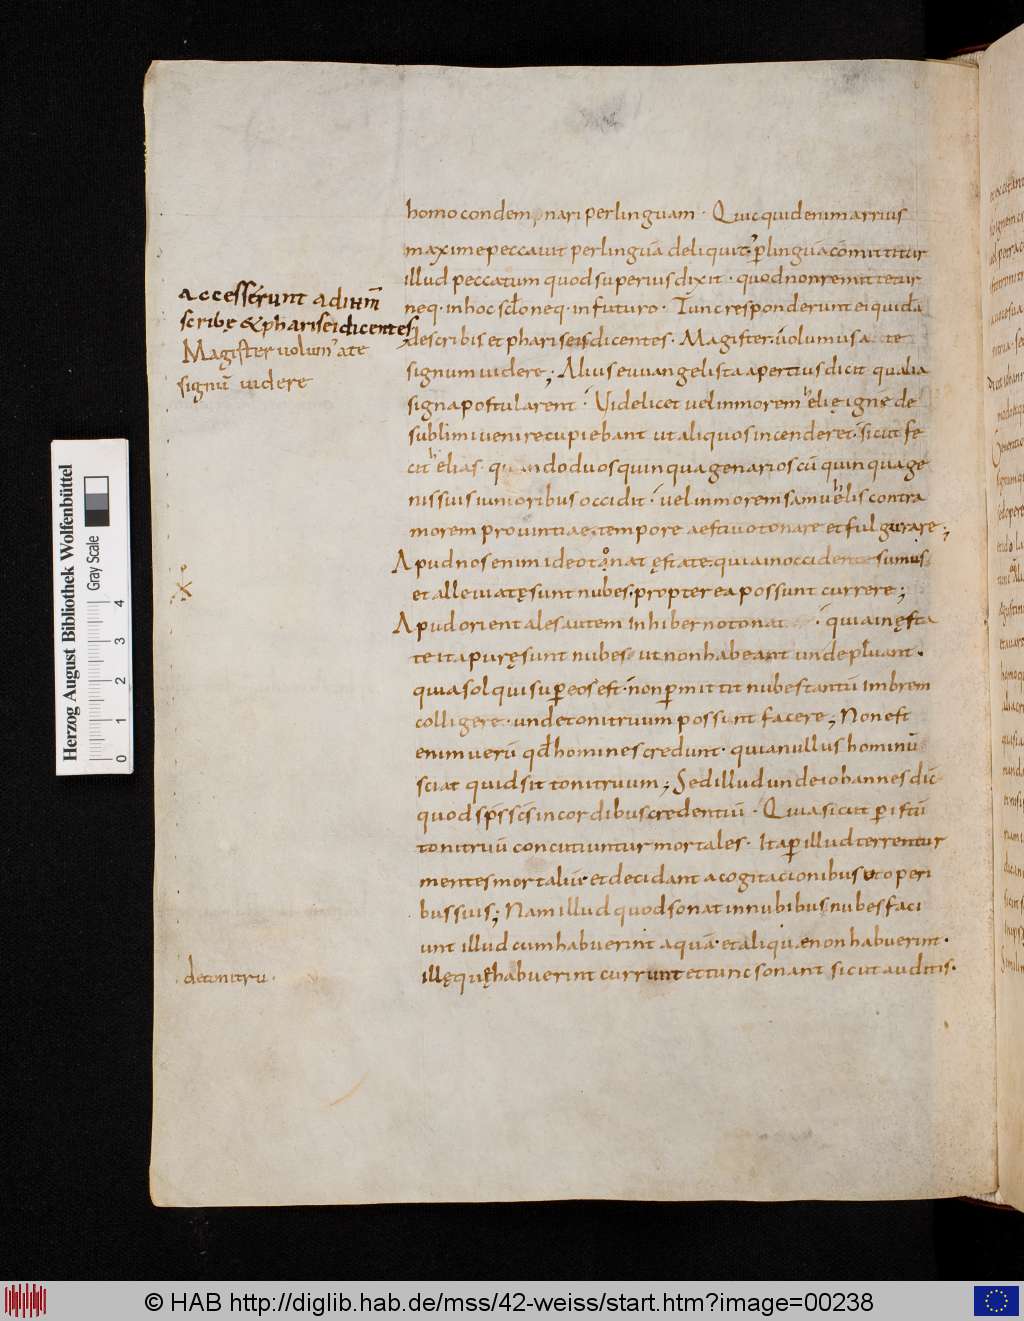 homo condemnari per linguam · Quicquid enim arrius
maxime peccavit per linguā deliquit· ꝑ linguā cōmittitur
illud peccatum quod superius dixit · quod non remittetur
neq· in hoc sclo neq· in futuro · Tunc responderunt ei quidā
de scribis et phariseis dicentes · Magister volumus a te
signum videre; Alius euuangelista apertius dicit qualia
signa postularent · Videlicet vel in morem helię ignę de
sublimi venire cupiebant ut aliquos incenderet· sicut fe
cit helias· quando duos quinquagenarios cū quinquage
nis suis iunioribus occidit · vel in morem samuhelis contra
morem provintiae tempore aestivo tonare et fulgurare;
Apud nos enim ideo tonat ęstate· quia in occidente sumus
et alleviatę sunt nubes· propterea possunt currere;
Apud orientales autem in hiberno tonat · quia in ęsta
te ita purę sunt nubes ut non habeant unde pluant·
quia sol qui suꝑ eos est· non ꝑmittit nubes tantū imbrem
colligere· unde tonitruum possunt facere; Non est
enim verū qđ homines credunt· quia nullus hominū
sciat quid sit tonitruum; Sed illud unde iohannes dic·
quod sp̄s sc̄s in cordibus credentiū · Quia sicut ꝑ istū
tonitruū concutiuntur mortales· Ita ꝑ illud terrentur
mentes mortaliū· et decidant a cogitacionibus et operi
bus suis; Nam illud quod sonat in nubibus nubes faci
unt illud cum habuerint aquā· et aliquae non habuerint·
illę quę habuerint currunt et tunc sonant sicut auditis·
accesserunt ad ihm̄
scribę & pharisei dicentes
Magister volum' a te
signū videre
de tonitru·
Herzog August Bibliothek Wolfenbüttel
Gray Scale
0 1 2 3 4
© HAB http://diglib.hab.de/mss/42-weiss/start.htm?image=00238